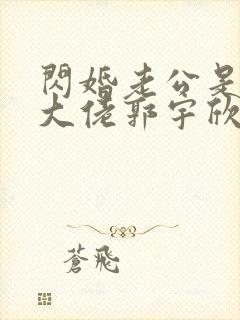 閃婚老公是
大佬郭宇欣
蒼飛